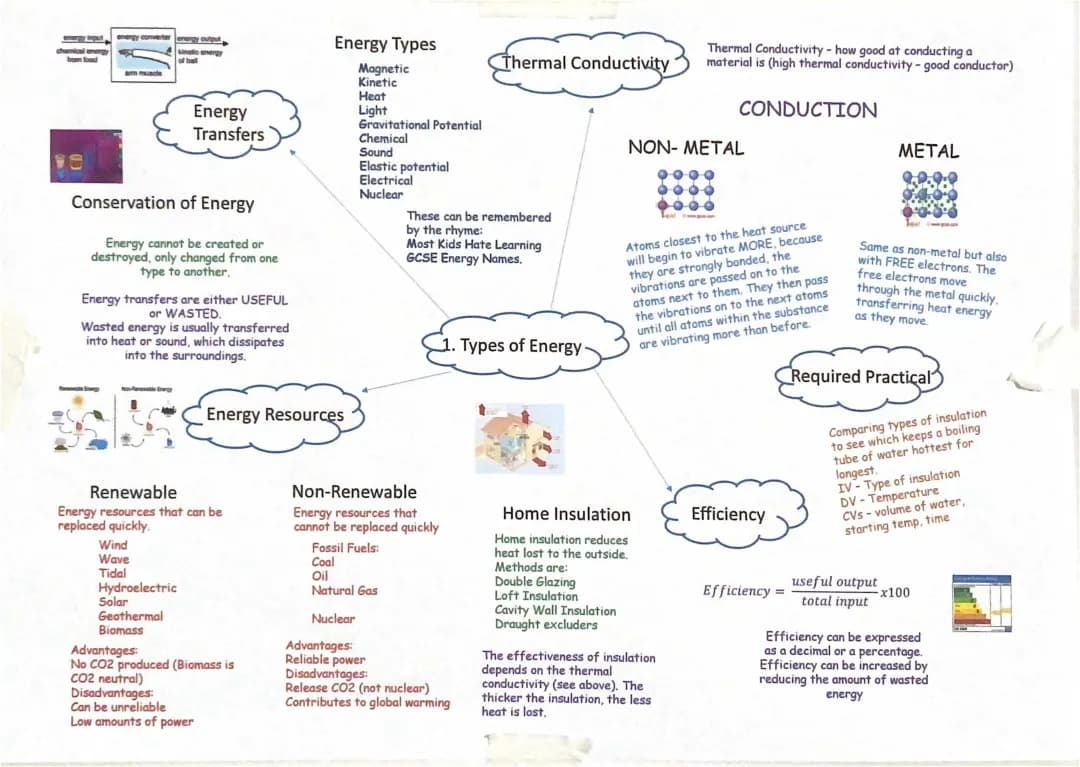 energy input
energy converter
energy output
chemical energy
from food
kinetic energy
of ball
arm muscle
Energy
Transfers
Conservation of Energy
Energy cannot be created or
destroyed, only changed from one
type to another.
Energy transfers are either USEFUL
or WASTED.
Wasted energy is usually transferred
into heat or sound, which dissipates
into the surroundings.
Energy Types
Magnetic
Kinetic
Heat
Light
Gravitational Potential
Chemical
Sound
Elastic potential
Electrical
Nuclear
These can be remembered
by the rhyme:
Most Kids Hate Learning
GCSE Energy Names.
Thermal Conductivity
Thermal Conductivity – how good at conducting a
material is (high thermal conductivity – good conductor)
CONDUCTION
NON- METAL
Atoms closest to the heat source
will begin to vibrate MORE, because
they are strongly bonded, the
vibrations are passed on to the
atoms next to them. They then pass
the vibrations on to the next atoms
until all atoms within the substance
are vibrating more than before.
METAL
Same as non-metal but also
with FREE electrons. The
free electrons move
through the metal quickly,
transferring heat energy
as they move.
1. Types of Energy
Required Practical
Comparing types of insulation
to see which keeps a boiling
tube of water hottest for
longest.
IV - Type of insulation
DV - Temperature
CVs - volume of water,
starting temp, time
Renewable Energy
Non-Renewable Energy
Energy Resources
Renewable
Energy resources that can be
replaced quickly.
Wind
Wave
Tidal
Hydroelectric
Solar
Geothermal
Biomass
Advantages:
No CO2 produced (Biomass is
CO2 neutral)
Disadvantages:
Can be unreliable
Low amounts of power
Non-Renewable
Energy resources that
cannot be replaced quickly
Fossil Fuels:
Coal
Oil
Natural Gas
Nuclear
Advantages:
Reliable power
Disadvantages:
Release CO2 (not nuclear)
Contributes to global warming
Home Insulation
Home insulation reduces
heat lost to the outside.
Methods are:
Double Glazing
Loft Insulation
Cavity Wall Insulation
Draught excluders
The effectiveness of insulation
depends on the thermal
conductivity (see above). The
thicker the insulation, the less
heat is lost.
Efficiency
Efficiency = useful output / total input x100
Efficiency can be expressed
as a decimal or a percentage.
Efficiency can be increased by
reducing the amount of wasted
energy